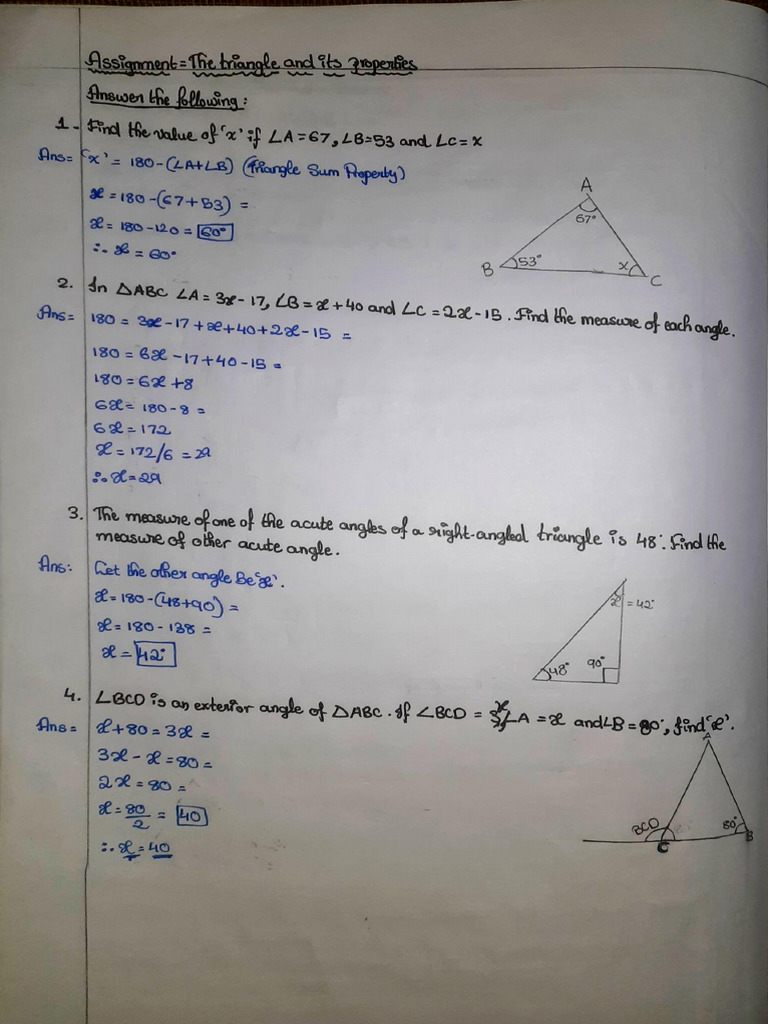 Assignment = The triangle and its properties
Answer the following:
1. Find the value of 'x' if ∠A = 67, ∠B = 53 and ∠C = x
Ans = 'x' = 180-(∠A+∠B) (Triangle Sum Property)
x = 180-(67+53) =
x = 180-120 = 60°
∴ x = 60°
A
67°
B 53° x C
2. In △ABC ∠A = 3x-17, ∠B = x+40 and ∠C = 2x-15. Find the measure of each angle.
Ans = 180 = 3x-17+x+40+2x-15 =
180 = 6x-17+40-15 =
180 = 6x+8
6x = 180-8 =
6x = 172
x = 172/6 = 29
∴ x = 29
3. The measure of one of the acute angles of a right-angled triangle is 48°. Find the
measure of other acute angle.
Ans: Let the other angle be 'x'.
x = 180-(48+90) =
x = 180-138 =
x = 42°
x = 42°
48° 90°
4. ∠BCD is an exterior angle of △ABC. If ∠BCD = ∠A = x and ∠B = 80°, find 'x'.
Ans = x+80 = 3x =
3x-x = 80 =
2x = 80 =
x = 80/2 = 40
∴ x = 40
A
BCD 80° B
C